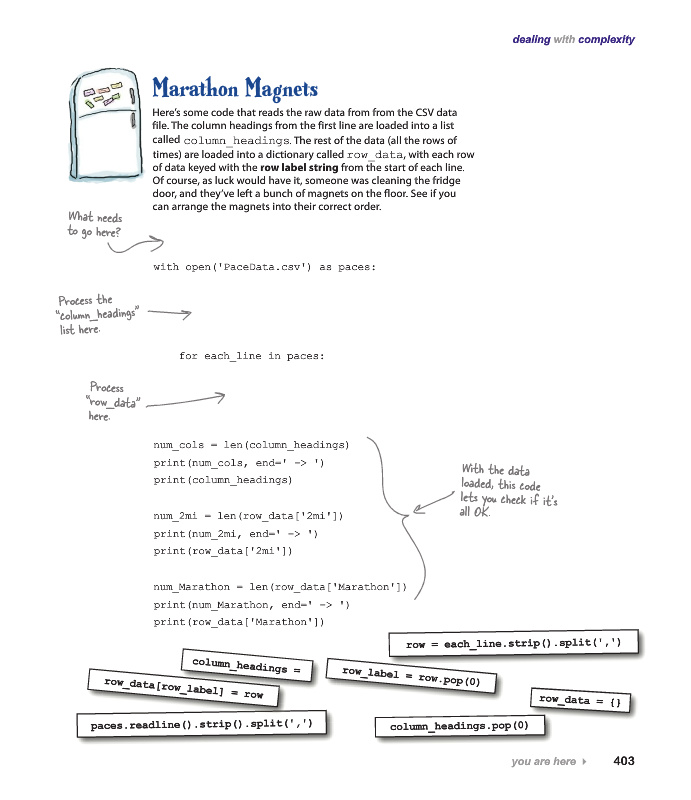 dealing with complexity
Marathon Magnets
Here's some code that reads the raw data from from the CSV data
file. The column headings from the first line are loaded into a list
called column_headings. The rest of the data (all the rows of
times) are loaded into a dictionary called row_data, with each row
of data keyed with the row label string from the start of each line.
Of course, as luck would have it, someone was cleaning the fridge
door, and they've left a bunch of magnets on the floor. See if you
can arrange the magnets into their correct order.
What needs
to go here?
with open('PaceData.csv') as paces:
Process the
"column_headings"
list here.
for each_line in paces:
Process
"row_data"
here.
num_cols = len(column_headings)
print(num_cols, end=' -> ')
print(column_headings)
With the data
loaded, this code
lets you check if it's
all OK.
num_2mi = len(row_data['2mi'])
print(num_2mi, end=' -> ')
print(row_data['2mi'])
num_Marathon = len(row_data['Marathon'])
print(num_Marathon, end=' -> ')
print(row_data['Marathon'])
row = each_line.strip().split(',')
column_headings =
row_label = row.pop(0)
row_data[row_label] = row
row_data = {}
paces.readline().strip().split(',')
column_headings.pop(0)
you are here 403